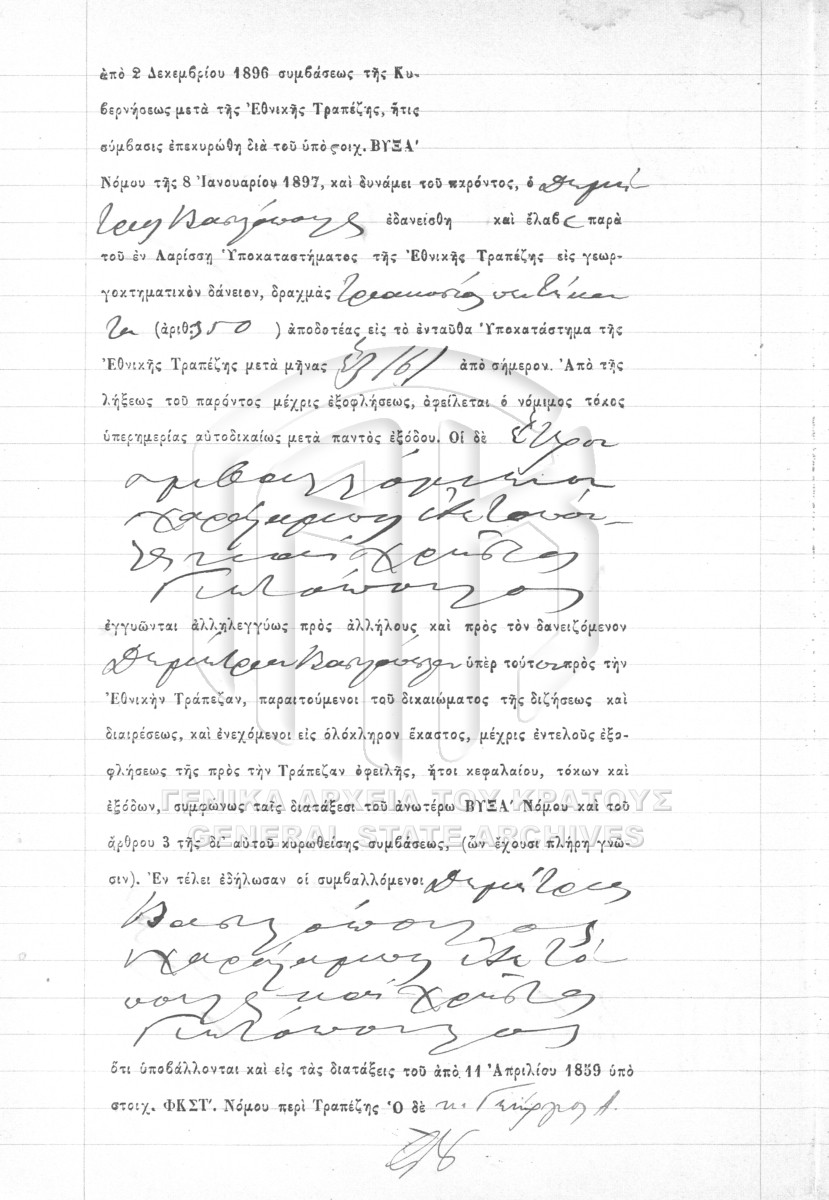 ἀπὸ 2 Δεκεμβρίου 1896 συμβάσεως τῆς Κυ-
βερνήσεως μετὰ τῆς Ἐθνικῆς Τραπέζης, ἥτις
σύμβασις ἐπεκυρώθη διὰ τοῦ ὑπὸ ϛοιχ. ΒΥΞΑʹ
Νόμου τῆς 8 Ἰανουαρίου 1897, καὶ δυνάμει τοῦ παρόντος, ὁ Δημή
τριος Βασιλόπουλος ἐδανείσθη καὶ ἔλαβε παρὰ
τοῦ ἐν Λαρίσσῃ Ὑποκαταστήματος τῆς Ἐθνικῆς Τραπέζης εἰς γεωρ-
γοκτηματικὸν δάνειον, δραχμὰς τριακοσίας πεντήκον
τα (ἀριθ. 350 ) ἀποδοτέας εἰς τὸ ἐνταῦθα Ὑποκατάστημα τῆς
Ἐθνικῆς Τραπέζης μετὰ μῆνας ἕξ /6/ ἀπὸ σήμερον. Ἀπὸ τῆς
λήξεως τοῦ παρόντος μέχρις ἐξοφλήσεως, ὀφείλεται ὁ νόμιμος τόκος
ὑπερημερίας αὐτοδικαίως μετὰ παντὸς ἐξόδου. Οἱ δὲ ἕτεροι
συμβαλλόμενοι
Χαράλαμπος
καὶ Χρῆστος
ἐγγυῶνται ἀλληλεγγύως πρὸς ἀλλήλους καὶ πρὸς τὸν δανειζόμενον
Δημήτριον Βασιλόπουλον ὑπὲρ τούτου πρὸς τὴν
Ἐθνικὴν Τράπεζαν, παραιτούμενοι τοῦ δικαιώματος τῆς διζήσεως καὶ
διαιρέσεως, καὶ ἐνεχόμενοι εἰς ὁλόκληρον ἕκαστος, μέχρις ἐντελοῦς ἐξο-
φλήσεως τῆς πρὸς τὴν Τράπεζαν ὀφειλῆς, ἤτοι κεφαλαίου, τόκων καὶ
ΓΕΝΙΚΑ ΑΡΧΕΙΑ ΤΟΥ ΚΡΑΤΟΥΣ
ἐξόδων, συμφώνως ταῖς διατάξεσι τοῦ ἀνωτέρω ΒΥΞΑʹ Νόμου καὶ τοῦ
GENERAL STATE ARCHIVES
ἄρθρου 3 τῆς δι' αὐτοῦ κυρωθείσης συμβάσεως, (ὧν ἔχουσι πλήρη γνῶ-
σιν). Ἐν τέλει ἐδήλωσαν οἱ συμβαλλόμενοι Δημήτριος
Βασιλόπουλος
Χαράλαμπος
καὶ Χρῆστος
ὅτι ὑποβάλλονται καὶ εἰς τὰς διατάξεις τοῦ ἀπὸ 11 Ἀπριλίου 1859 ὑπὸ
στοιχ. ΦΚΣΤʹ. Νόμου περὶ Τραπέζης Ὁ δὲ κ. Γεώργιος Α.